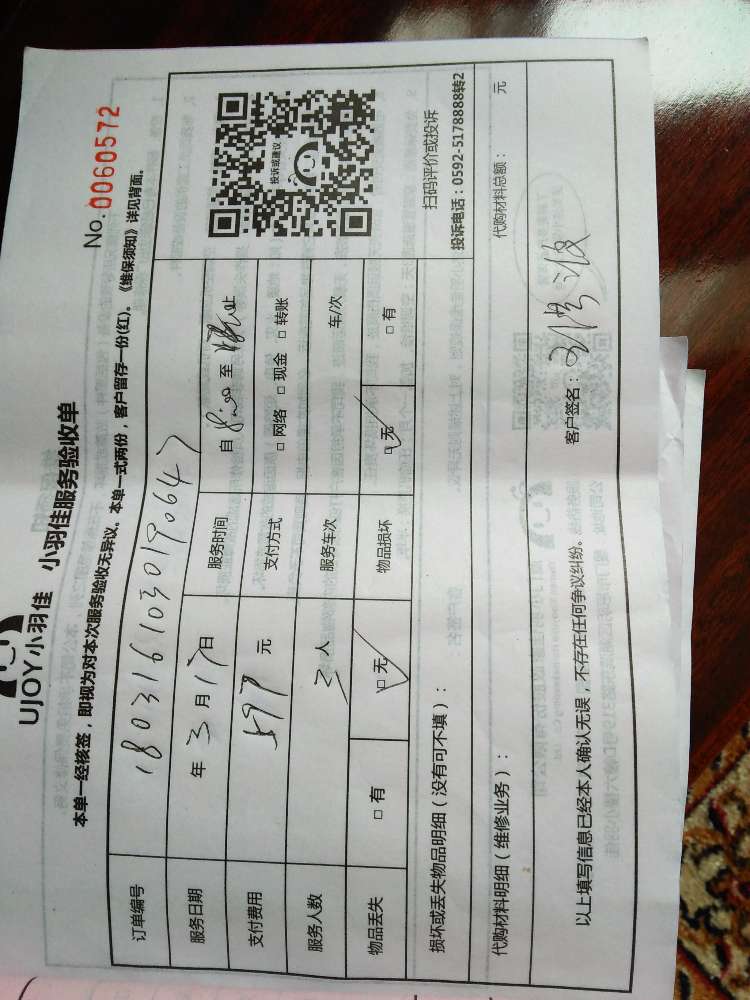 UJOY小羽佳 小羽佳服务验收单
No.0060572
本单一经核签，即视为对本次服务验收无异议。本单一式两份，客户留存一份(红)。《维保须知》详见背面。
订单编号 1803161030190647
服务日期 年 3 月 17 日 服务时间 自 8:00 至 止
支付费用 597 元 支付方式 □ 网络 □ 现金 □ 转账
服务人数 三 人 服务车次 车/次
物品丢失 □ 有 □ 无 物品损坏 □ 无 □ 有
投诉或建议
扫码评价或投诉
投诉电话：0592-5178888转2
损坏或丢失物品明细（没有可不填）：
代购材料明细（维修业务）： 代购材料总额： 元
以上填写信息已经本人确认无误，不存在任何争议纠纷。 客户签名：